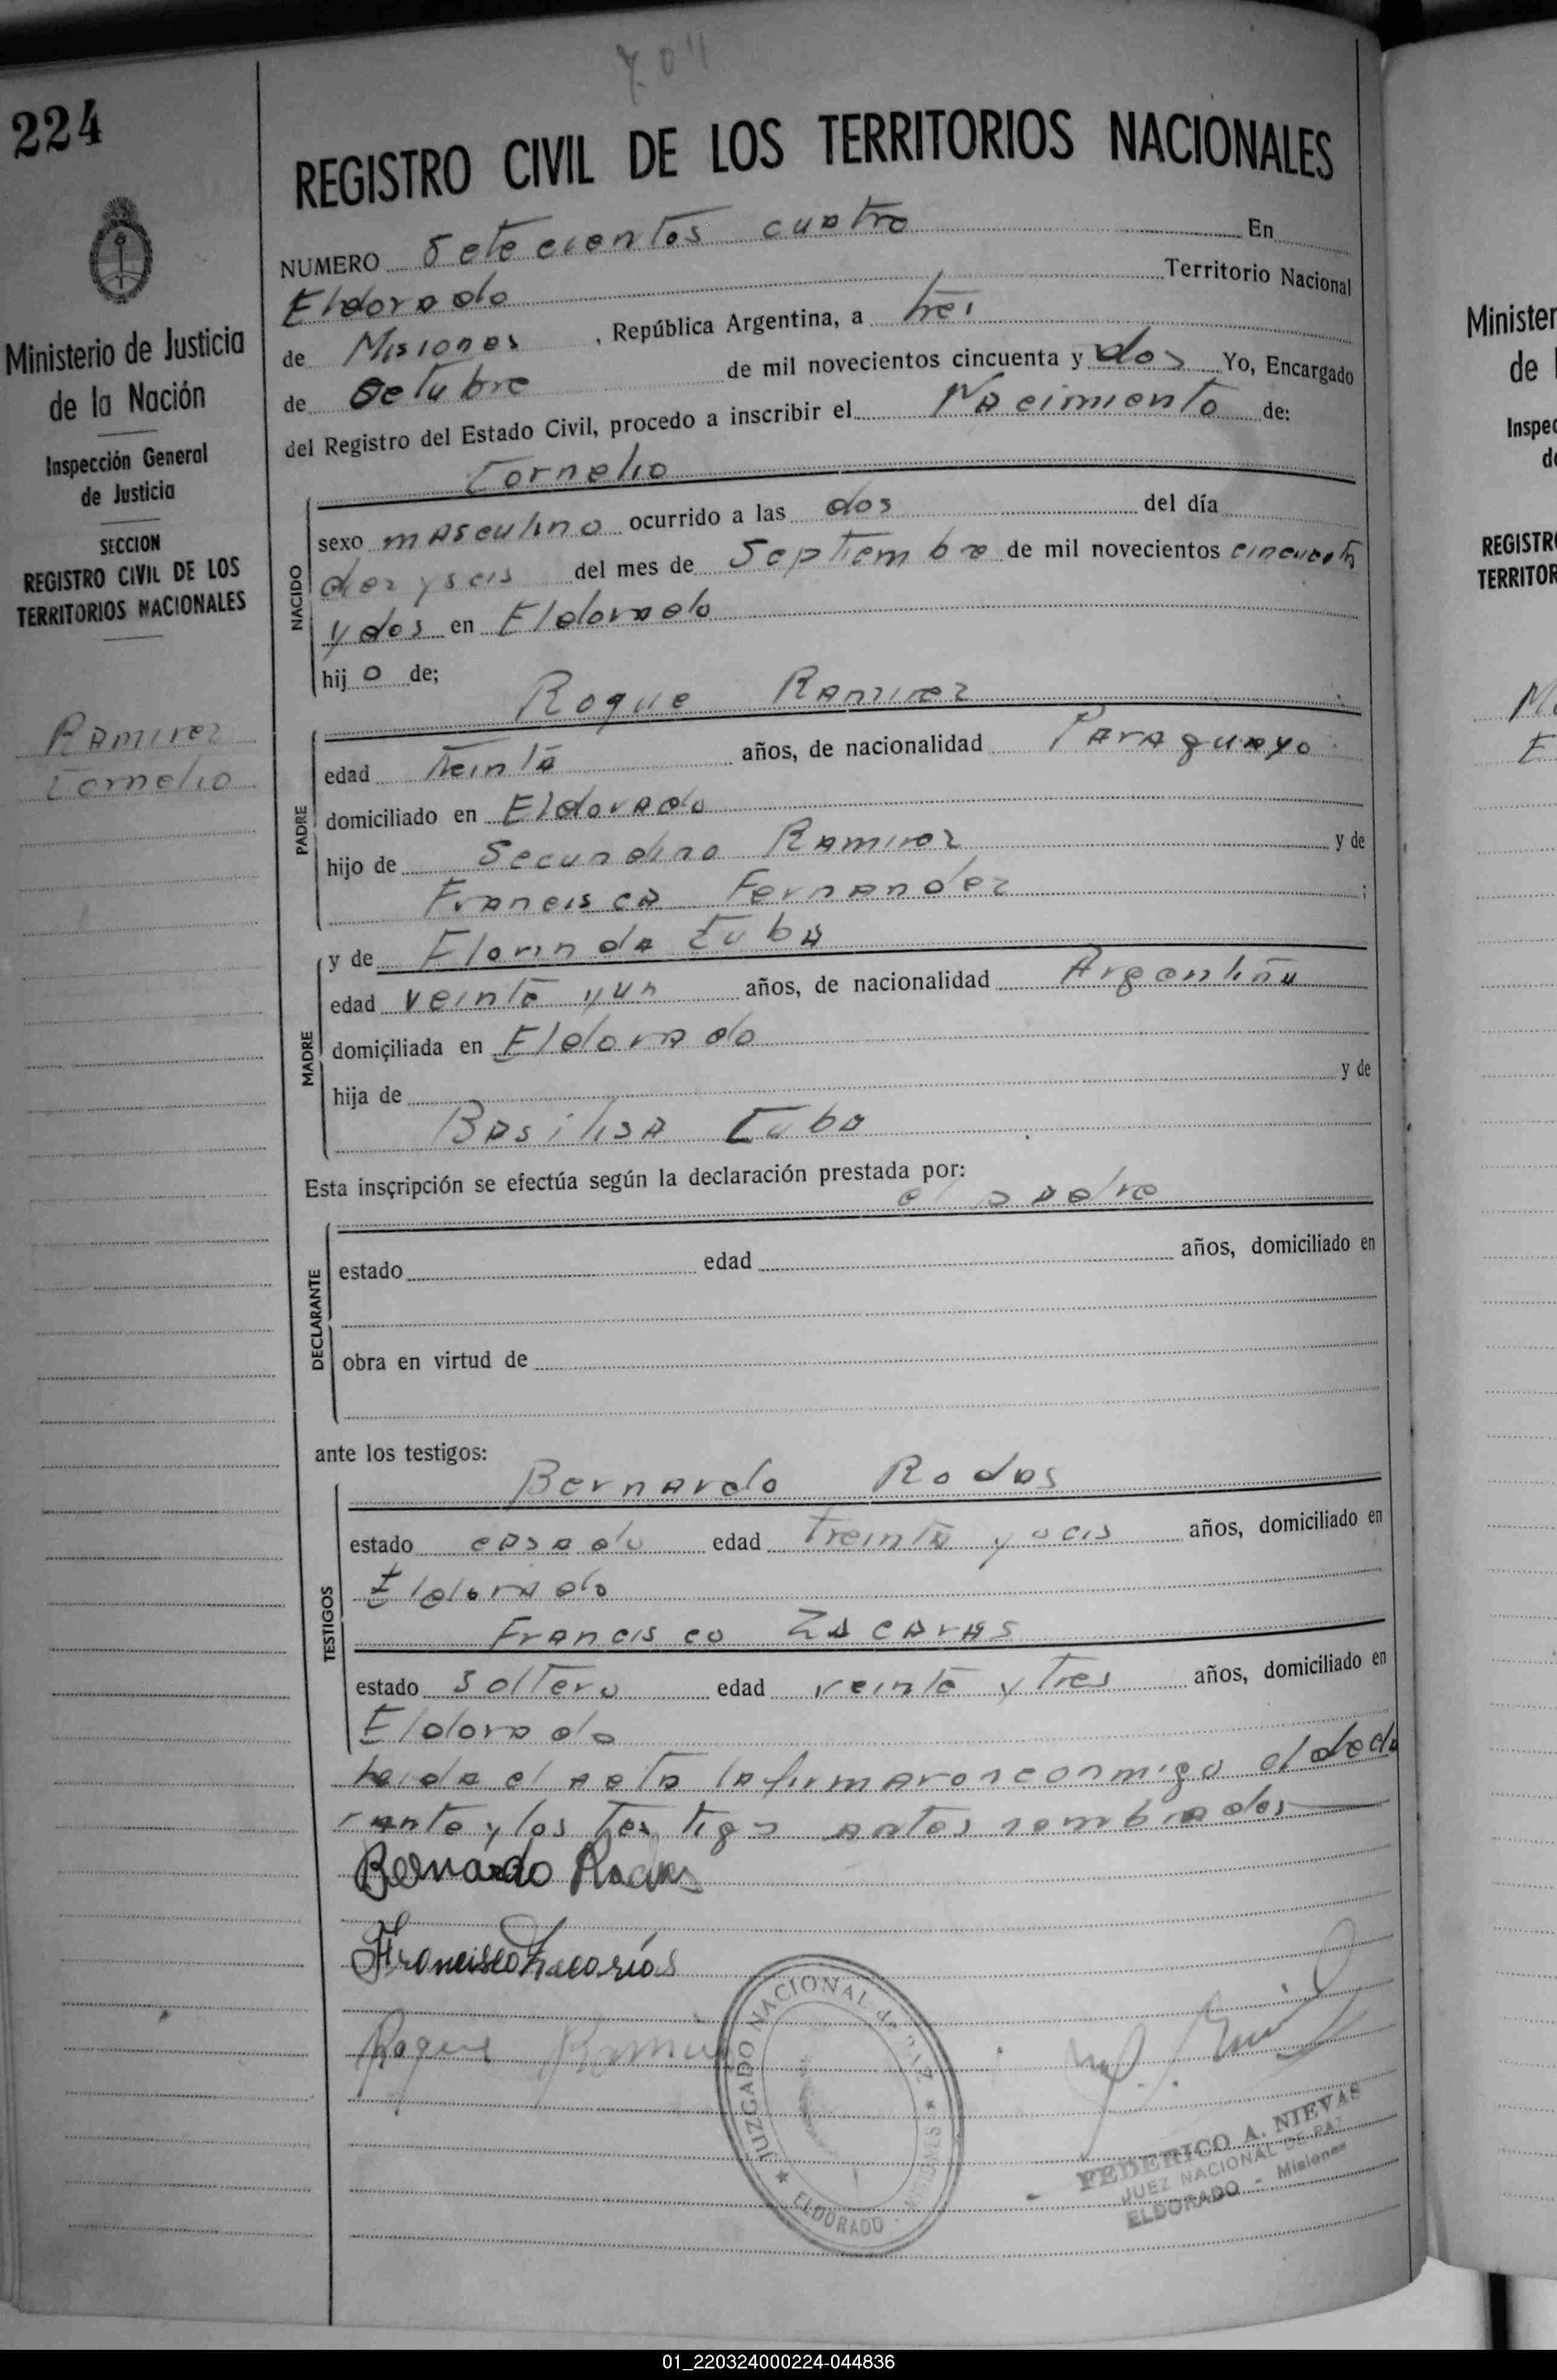 704
224
REGISTRO CIVIL DE LOS TERRITORIOS NACIONALES
NUMERO Setecientos cuatro En
Eldorado Territorio Nacional
de Misiones, República Argentina, a tres
de Octubre de mil novecientos cincuenta y dos Yo, Encargado
del Registro del Estado Civil, procedo a inscribir el Nacimiento de:
Cornelio
NACIDO
sexo masculino ocurrido a las dos del día
diez y seis del mes de Septiembre de mil novecientos cincuenta
y dos en Eldorado
hijo de;
Roque Ramirez
PADRE
edad treinta años, de nacionalidad Paraguayo
domiciliado en Eldorado
hijo de Secundino Ramirez y de
Francisca Fernandez;
MADRE
y de Florinda Cuba
edad veinte y un años, de nacionalidad Argentina
domiciliada en Eldorado
hija de y de
Basilisa Cuba
Esta inscripción se efectúa según la declaración prestada por:
el padre
DECLARANTE
estado edad años, domiciliado en
obra en virtud de
ante los testigos:
Bernardo Rodas
TESTIGOS
estado casado edad treinta y seis años, domiciliado en
Eldorado
Francisco Zacarias
estado soltero edad veinte y tres años, domiciliado en
Eldorado
Leida el acta la firmaron conmigo el decla
rante y los testigos antes nombrados
Bernardo Rodas
Francisco Zacarías
Roque Ramirez
JUZGADO NACIONAL de PAZ
ELDORADO - MISIONES
FEDERICO A. NIEVAS
JUEZ NACIONAL DE PAZ
ELDORADO - Misiones
Ministerio de Justicia
de la Nación
Inspección General
de Justicia
SECCION
REGISTRO CIVIL DE LOS
TERRITORIOS NACIONALES
Ramirez
Cornelio
Minister
de
Inspec
d
REGISTR
TERRITOR
01_220324000224-044836